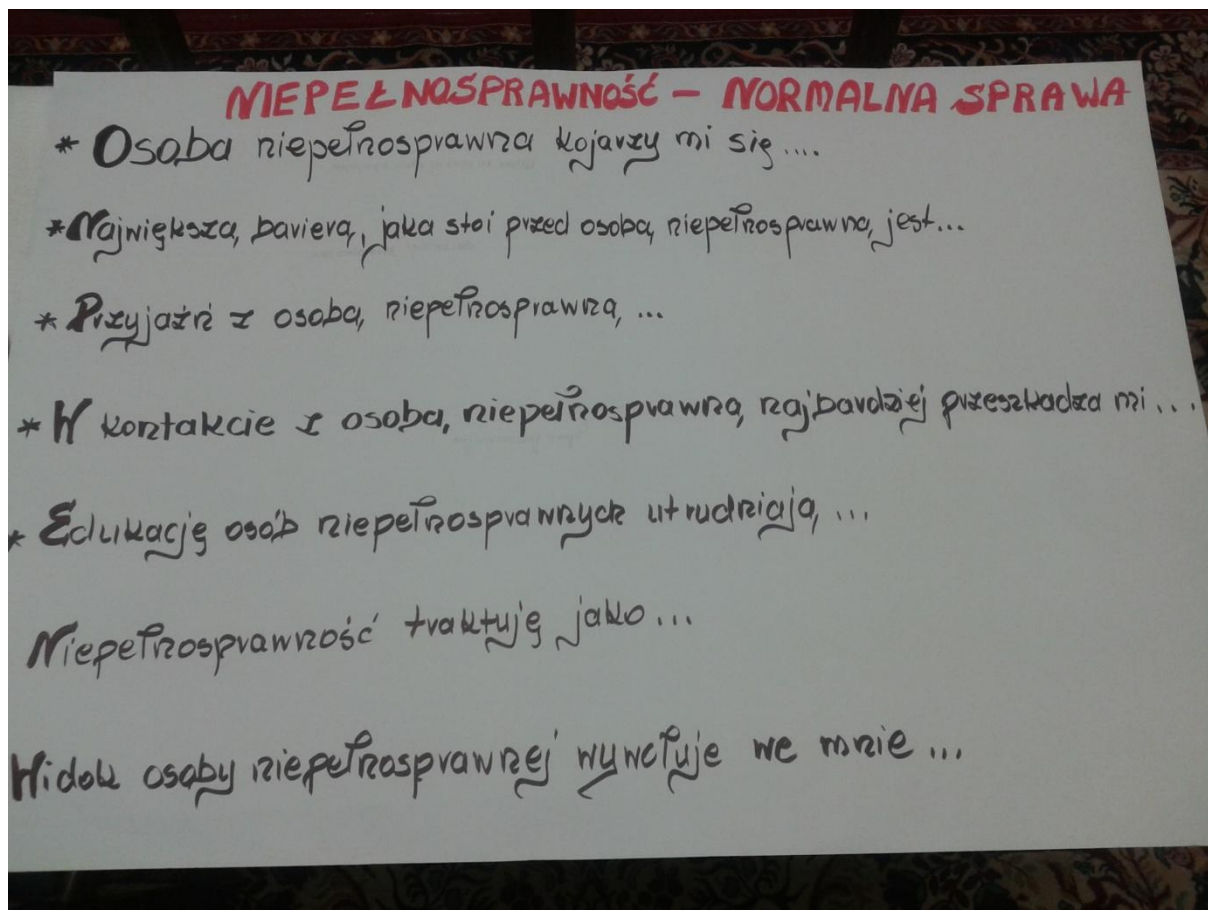 NIEPEŁNOSPRAWNOŚĆ – NORMALNA SPRAWA
* Osoba niepełnosprawna kojarzy mi się ....
* Największą barierą, jaka stoi przed osobą niepełnosprawną jest...
* Przyjaźń z osobą niepełnosprawną ...
* W kontakcie z osobą niepełnosprawną najbardziej przeszkadza mi ...
* Edukację osób niepełnosprawnych utrudniają ...
Niepełnosprawność traktuję jako ...
Widok osoby niepełnosprawnej wywołuje we mnie ...